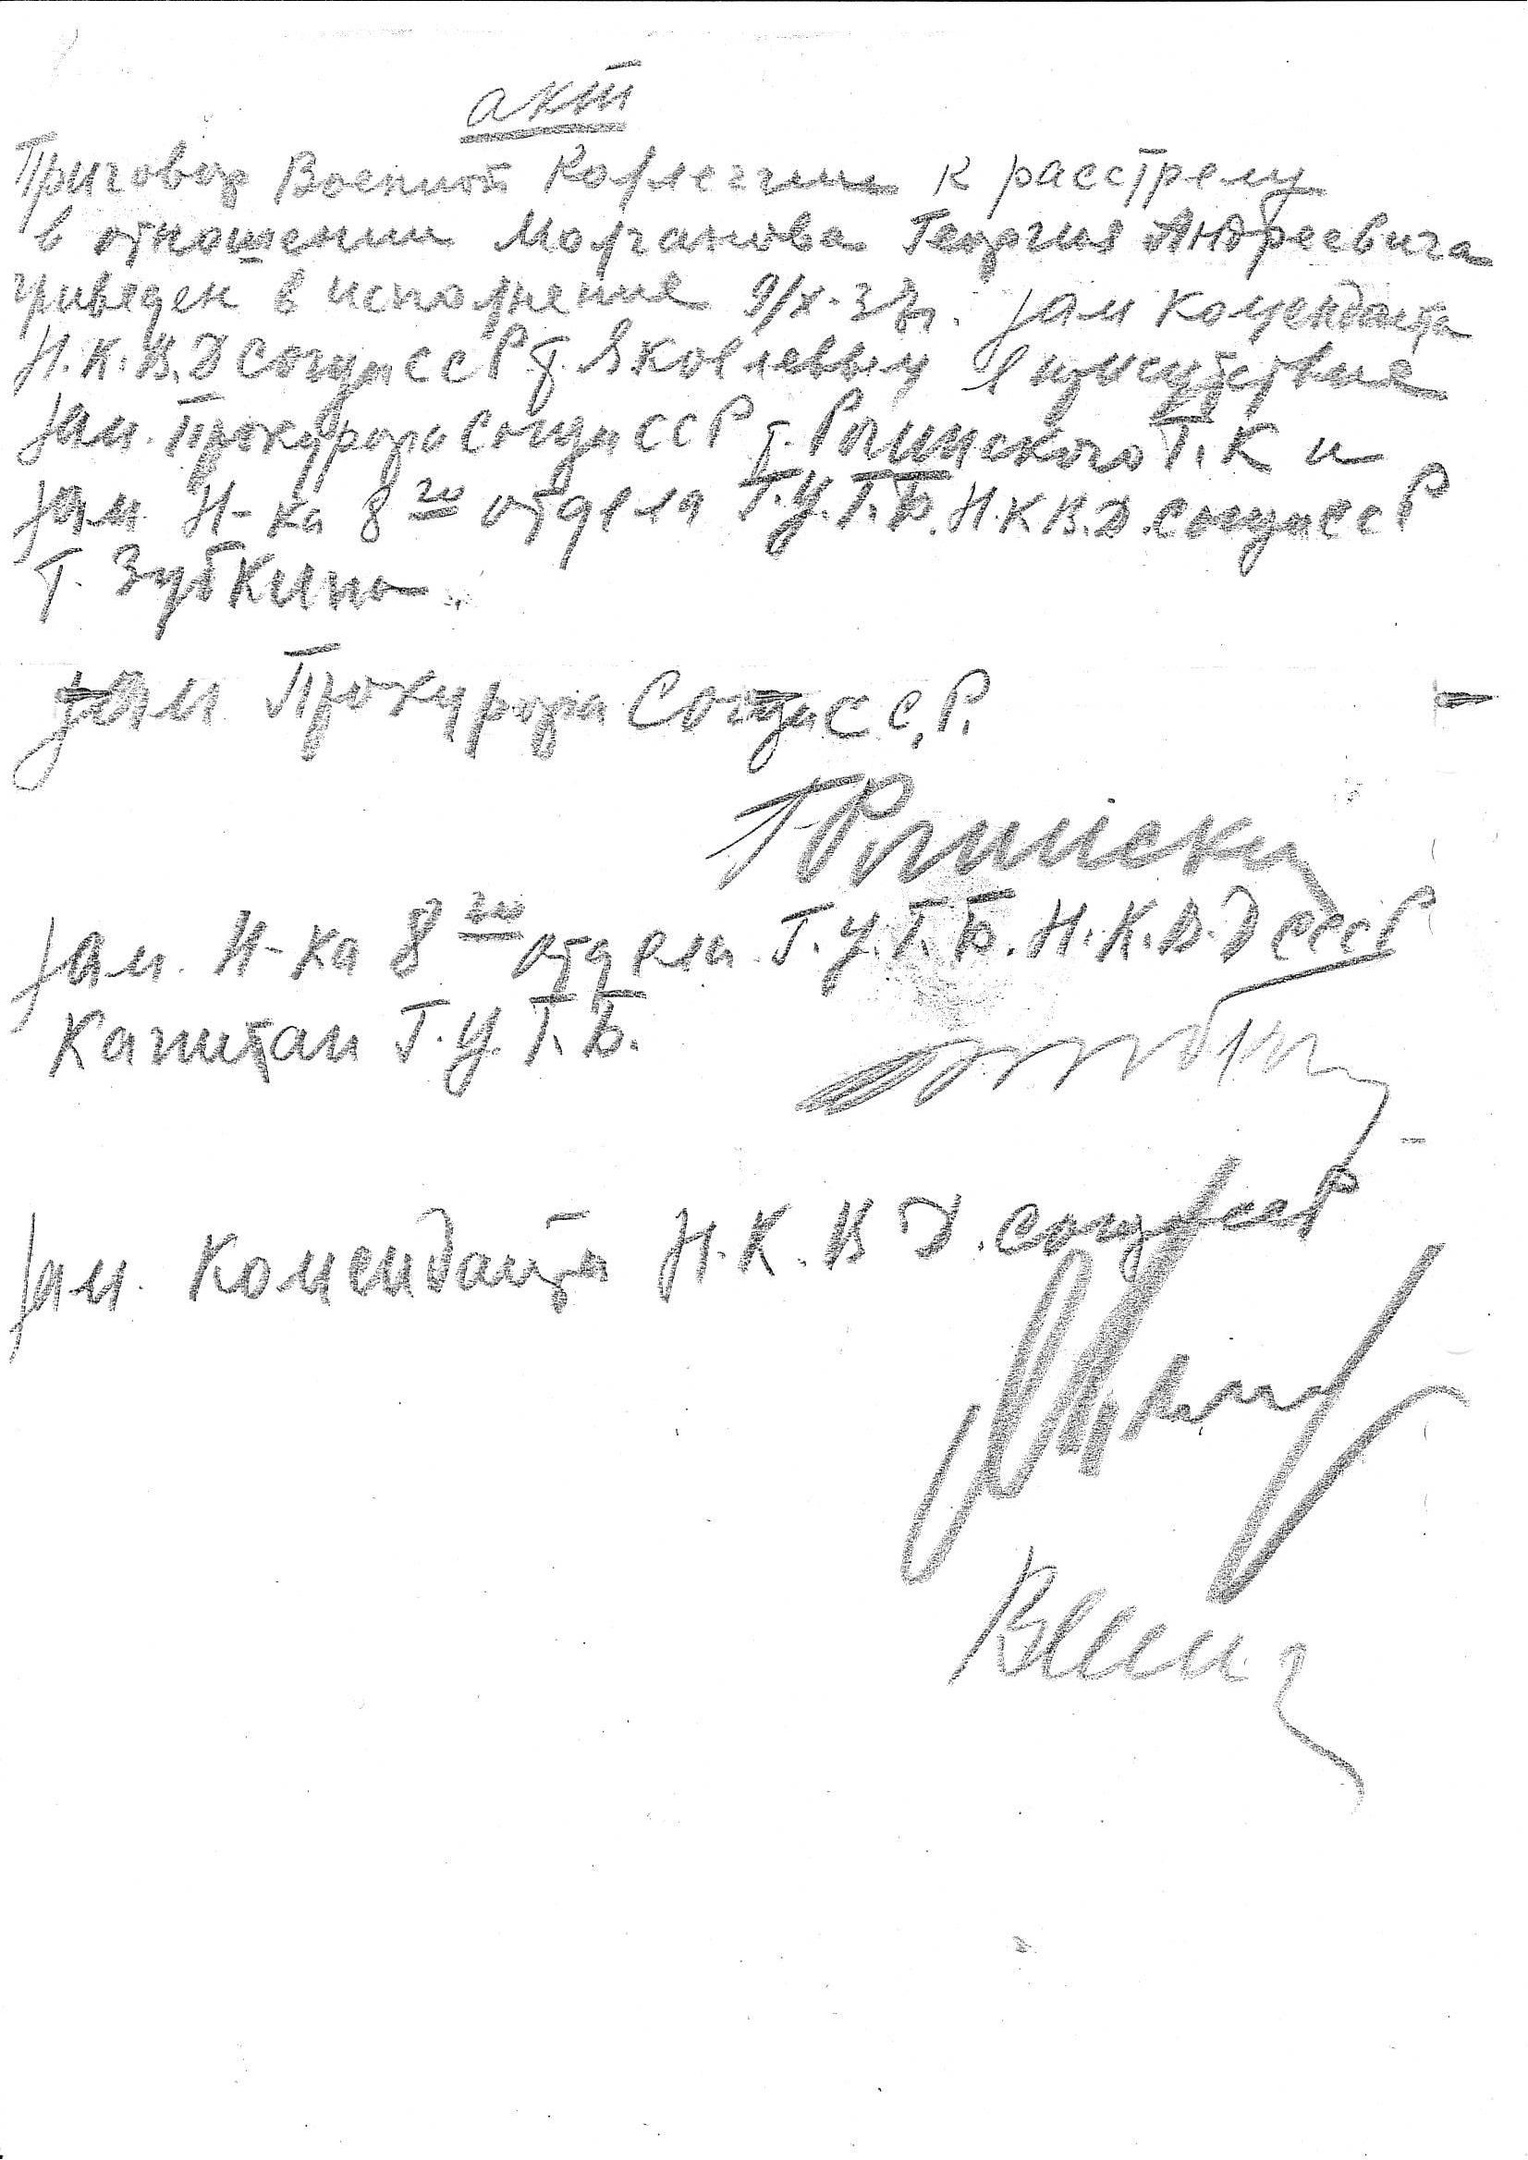 акт
Приговор Военной Коллегии к расстрелу
в отношении Молчанова Георгия Андреевича
приведен в исполнение 9/X-37г. зам коменданта
Н.К.В.Д Союза ССР т. Яковлевым в присутствие
зам. Прокурора Союза ССР т. Рогинского Г.К и
зам. Н-ка 8го отдела Г.У.Г.Б. Н.К.В.Д. Союза ССР
т. Зубкина
зам Прокурора Союза С.С.Р.
Г Рогинский
зам. Н-ка 8го отдела Г.У.Г.Б. Н.К.В.Д СССР
Капитан Г.У.Г.Б.
зам. Коменданта Н.К.В Д. Союза ССР